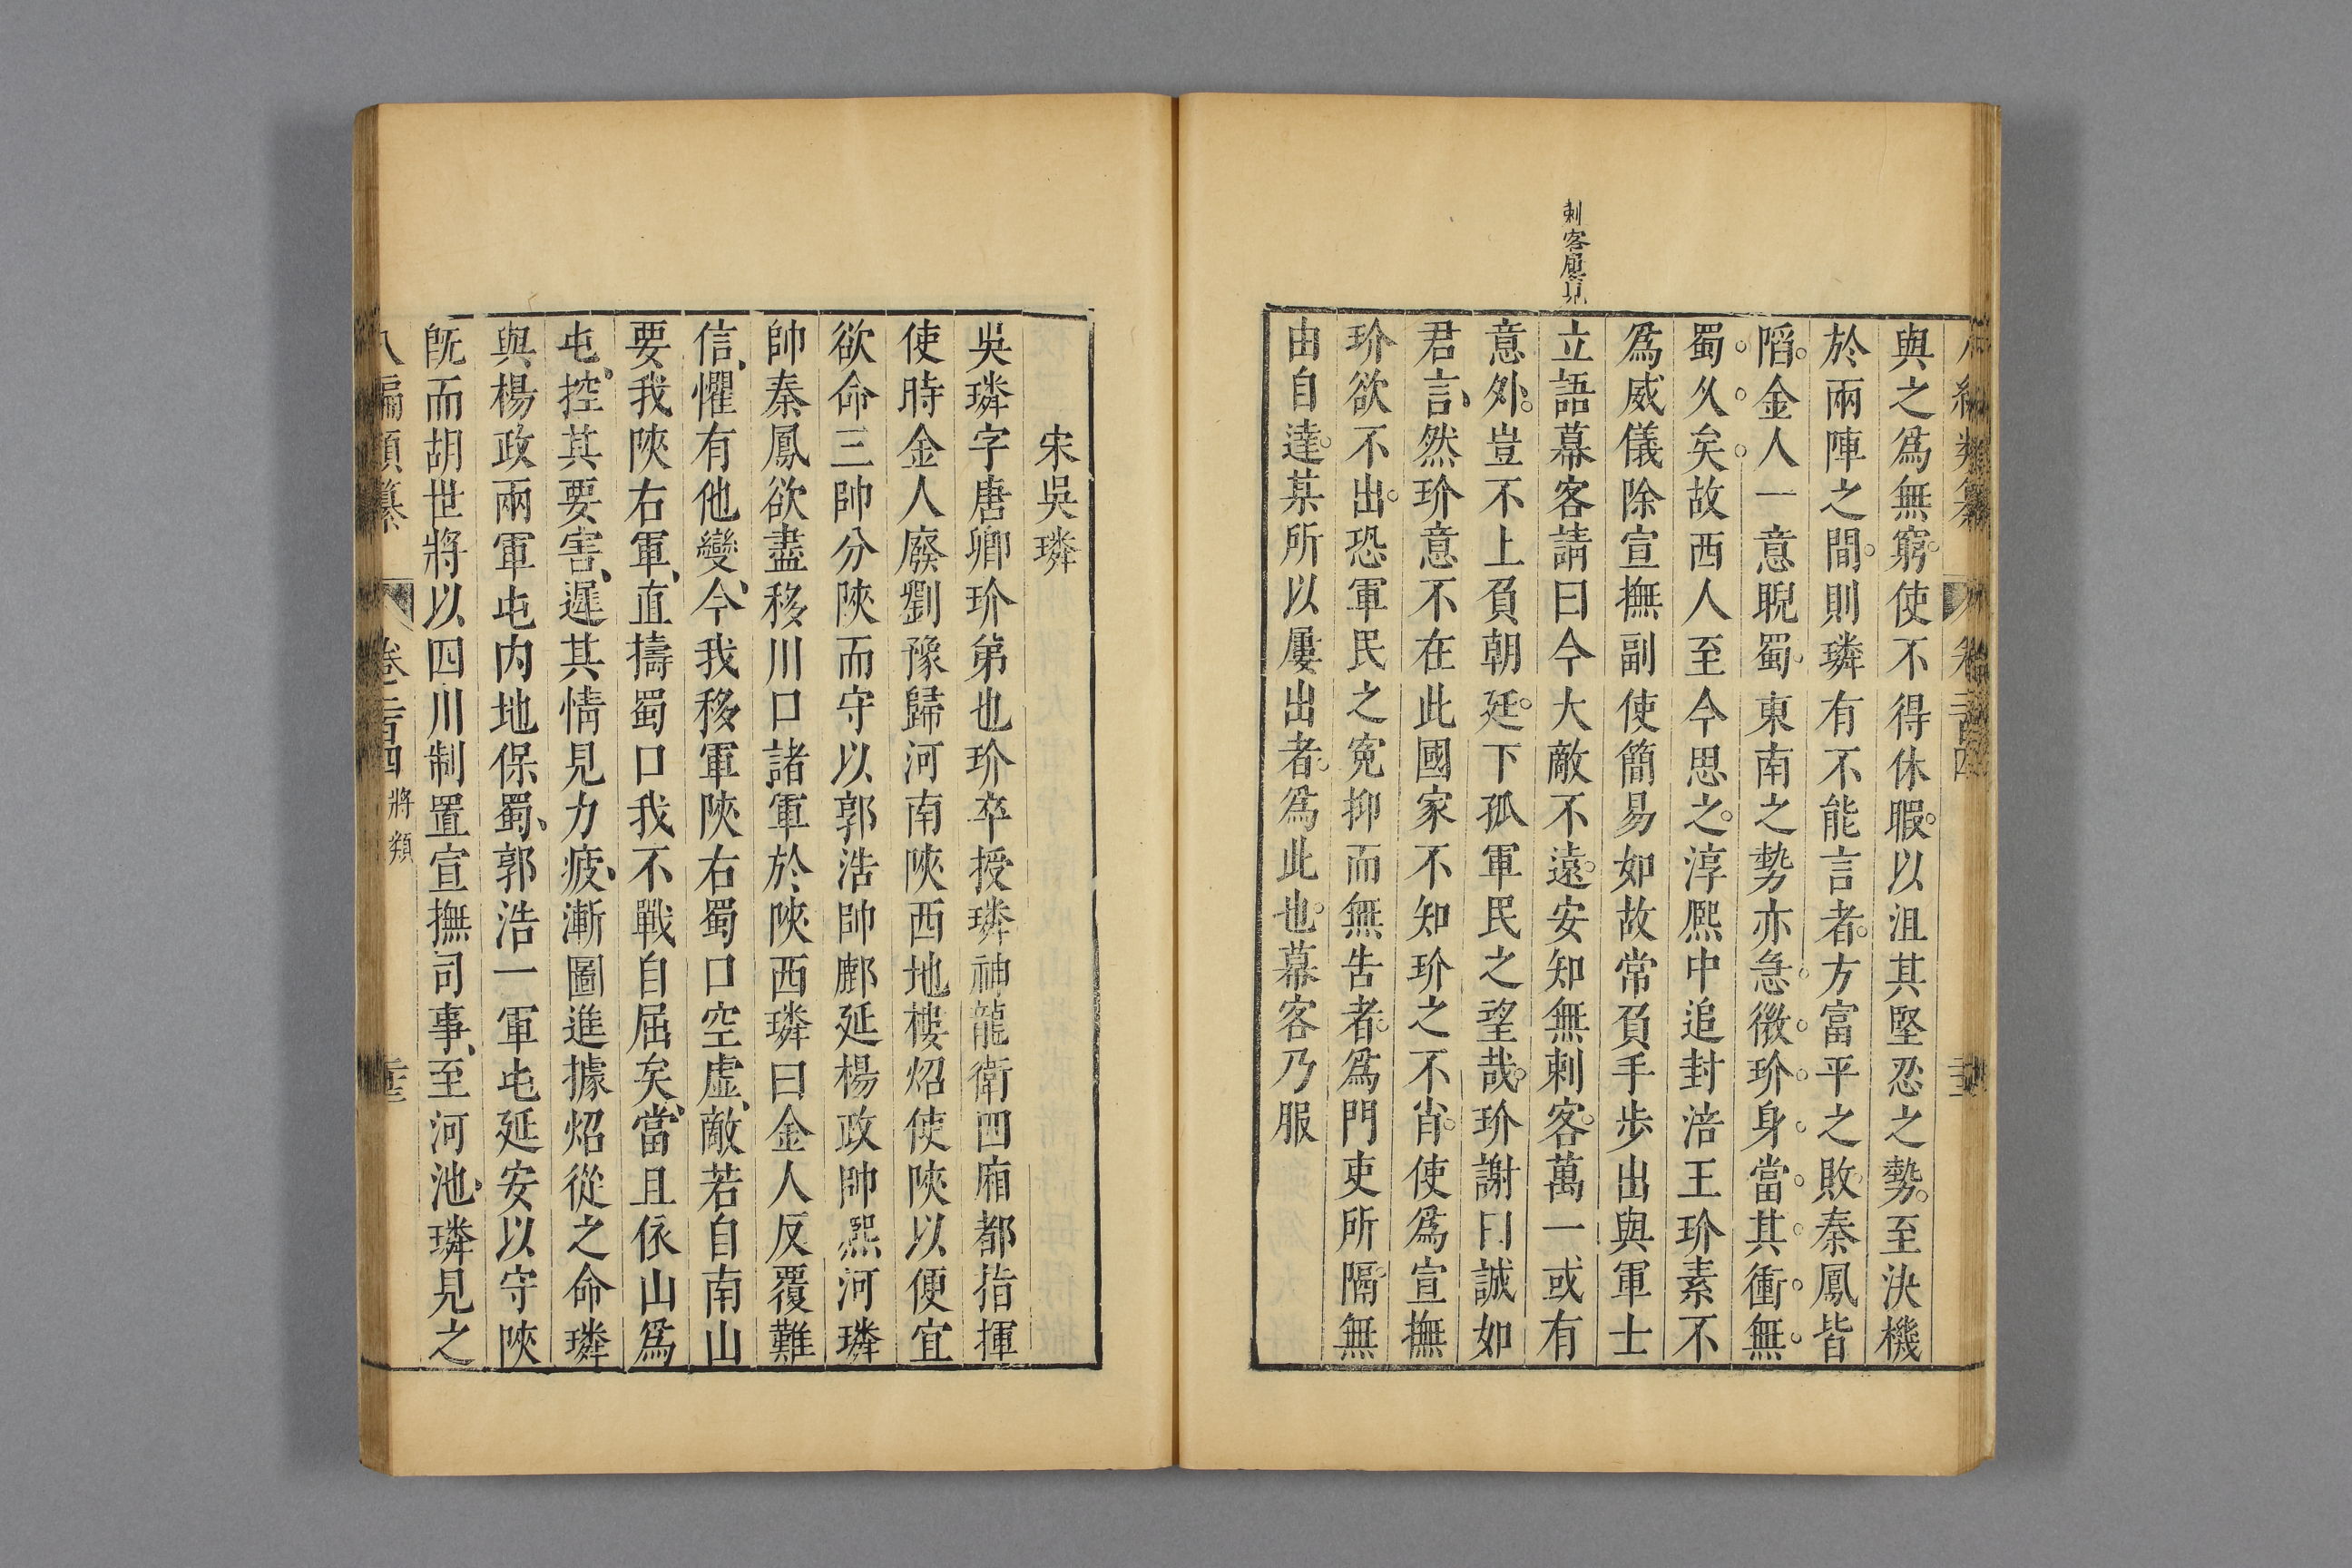 與之爲無窮使不得休暇以沮其堅忍之勢至決機
於兩陣之間則璘有不能言者方富平之敗秦鳳皆
陷金人一意睨蜀東南之勢亦急微玠身當其衝無
蜀久矣故西人至今思之淳熙中追封涪王玠素不
爲威儀除宣撫副使簡易如故常負手步出與軍士
立語幕客請曰今大敵不遠安知無刺客萬一或有
意外豈不上負朝廷下孤軍民之望哉玠謝曰誠如
君言然玠意不在此國家不知玠之不肖使爲宣撫
玠欲不出恐軍民之寃抑而無告者爲門吏所隔無
由自達某所以屢出者爲此也幕客乃服
刺客
宋吳璘
吳璘字唐卿玠弟也玠卒授璘神龍衛四廂都指揮
使時金人廢劉豫歸河南陝西地樓炤使陝以便宜
欲命三帥分陝而守以郭浩帥鄜延楊政帥熙河璘
帥秦鳳欲盡移川口諸軍於陝西璘曰金人反覆難
信懼有他變今我移軍陝右蜀口空虛敵若自南山
要我陝右軍直擣蜀口我不戰自屈矣當且依山爲
屯控其要害遲其情見力疲漸圖進據炤從之命璘
與楊政兩軍屯内地保蜀郭浩一軍屯延安以守陝
旣而胡世將以四川制置宣撫司事至河池璘見之
八編類纂 卷二百四 將類